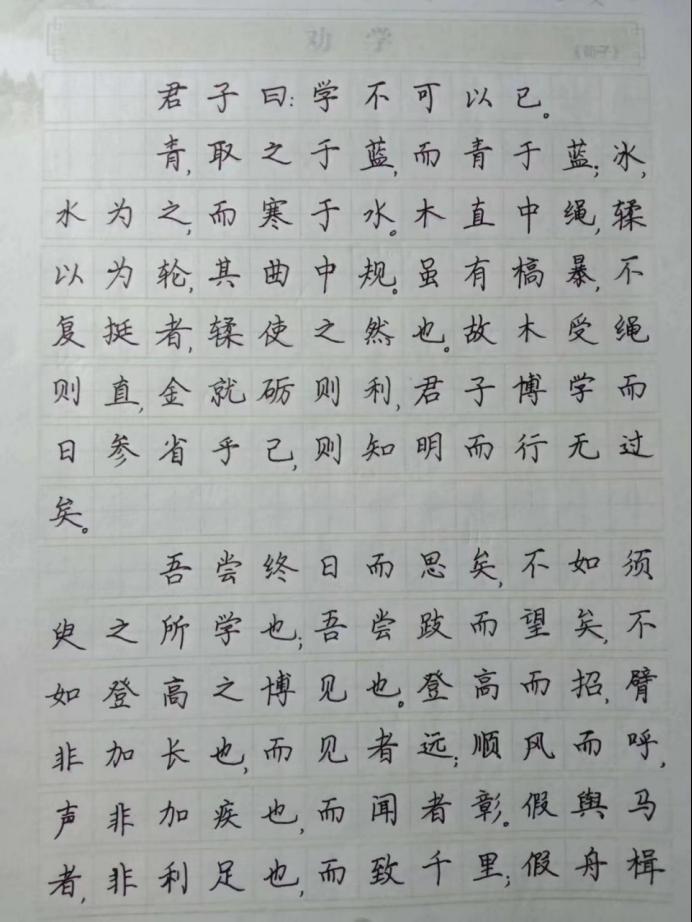 劝学
《荀子》
君子曰：学不可以已。
青，取之于蓝，而青于蓝；冰，
水为之，而寒于水。木直中绳，𫐓
以为轮，其曲中规。虽有槁暴，不
复挺者，𫐓使之然也。故木受绳
则直，金就砺则利，君子博学而
日参省乎己，则知明而行无过
矣。
吾尝终日而思矣，不如须
臾之所学也；吾尝跂而望矣，不
如登高之博见也。登高而招，臂
非加长也，而见者远；顺风而呼，
声非加疾也，而闻者彰。假舆马
者，非利足也，而致千里；假舟楫